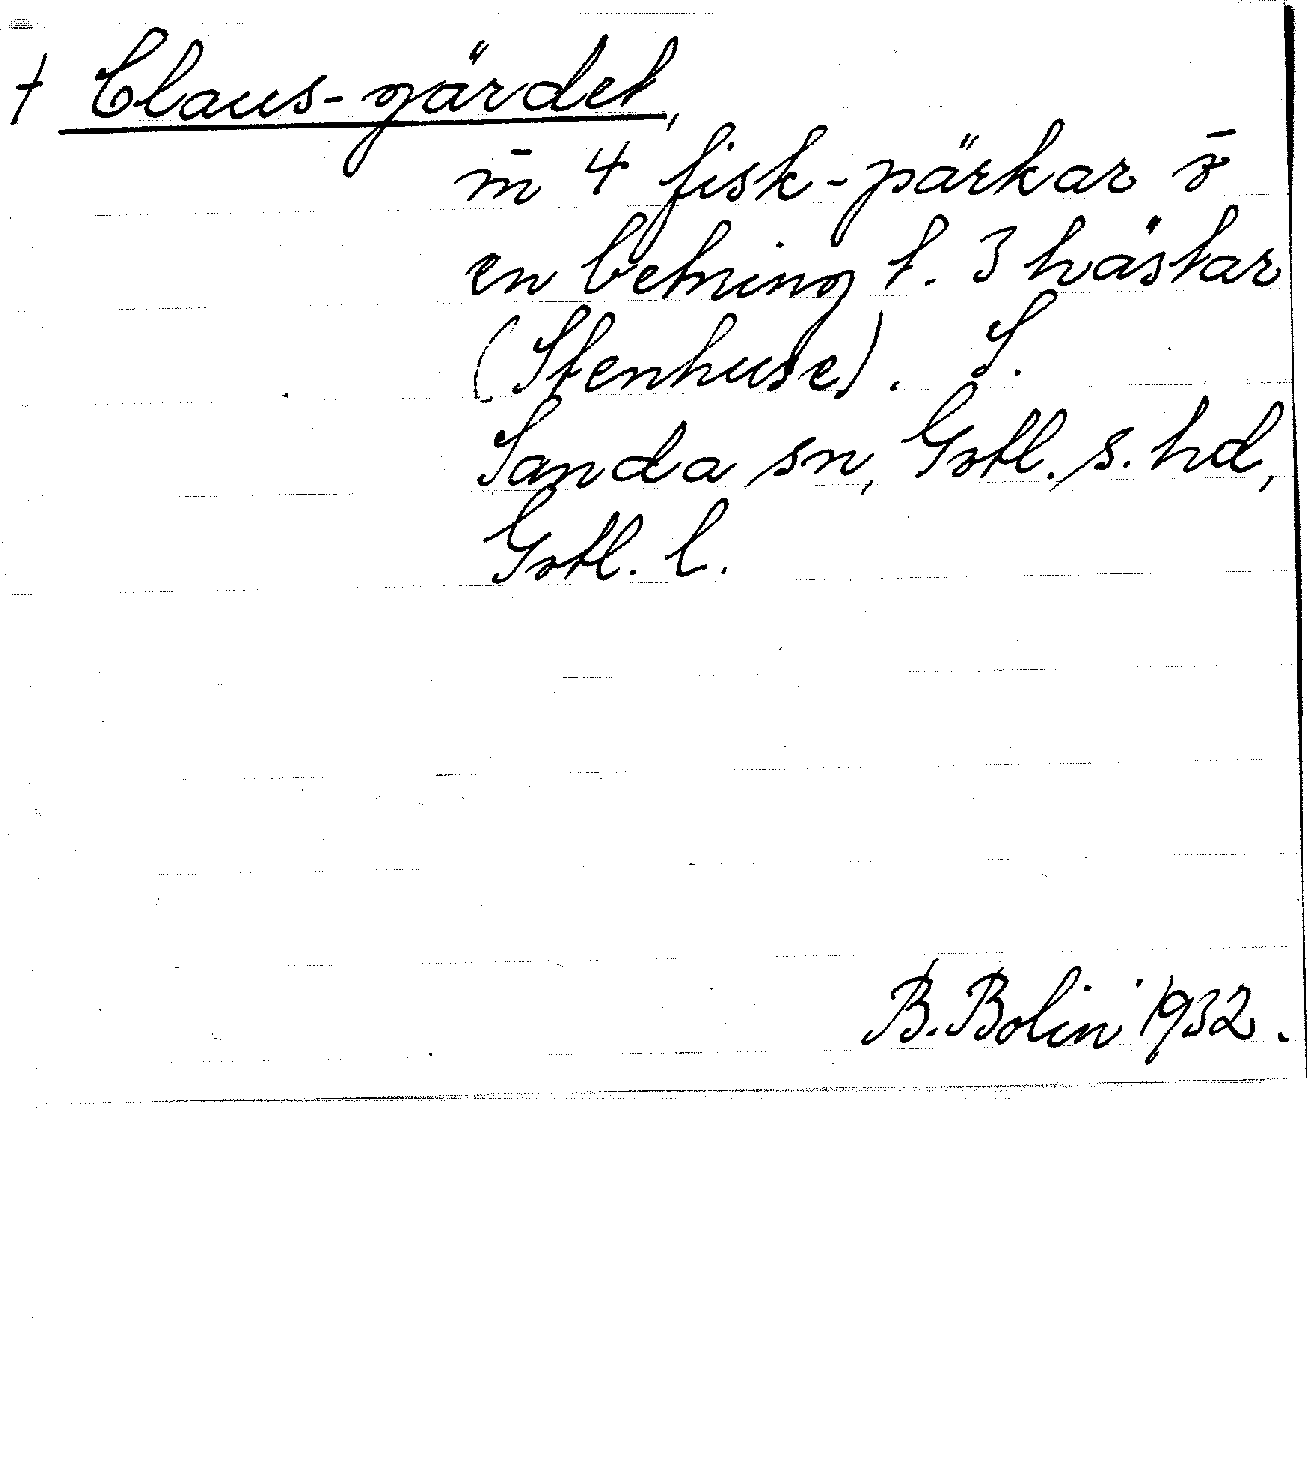 † Claus-gärdet,
m̄ 4 fisk-pärkar
en betning t. 3 hästar
(Stenhuse). S.
Sanda sn, Gotl. s. hd,
Gotl. l.
B. Bolin 1932.